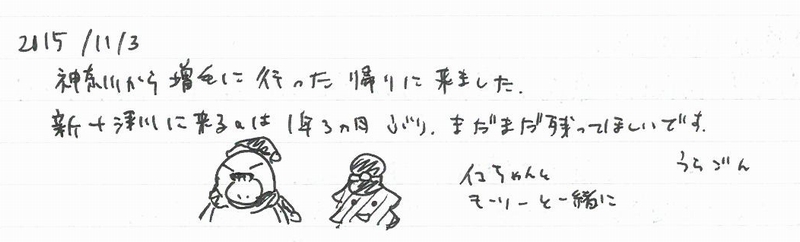 2015/11/3
神奈川から増毛に行った帰りに来ました.
新十津川に来るのは1年3ヵ月ぶり. まだまだ残ってほしいです.
うらごん
仁ちゃんと
モーリーと一緒に